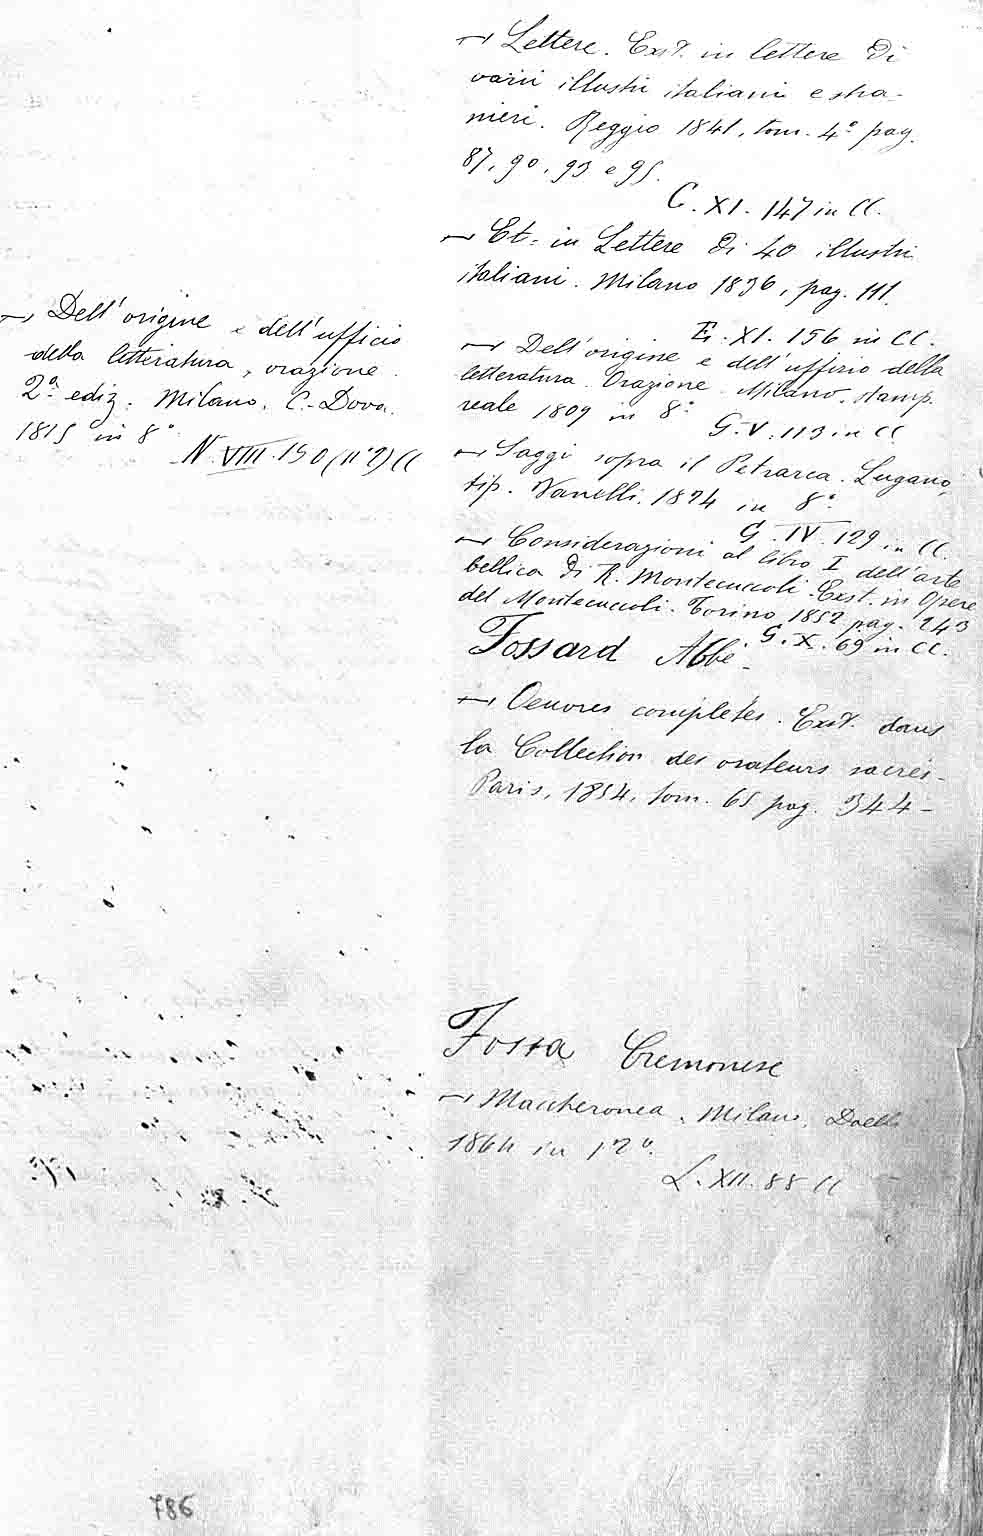 — Dell'origine e dell'ufficio
della letteratura, orazione.
2ª ediz. Milano. C. Dova.
1815 in 8°
N. VIII. 150 (n° 2) CC
— Lettere. Exst. in lettere di
varii illustri italiani e stra-
nieri. Reggio 1841, tom. 4° pag.
87, 90, 93 e 95.
C. XI. 147 in CC.
— Et. in Lettere di 40 illustri
italiani. Milano 1836, pag. 111.
E. XI. 156 in CC.
— Dell'origine e dell'uffizio della
letteratura. Orazione. Milano, stamp.
reale 1809 in 8°
G. V. 113 in CC
— Saggi sopra il Petrarca. Lugano,
tip. Vanelli. 1824 in 8°.
G. IV. 129 in CC.
— Considerazioni al libro I dell'arte
bellica di R. Montecuccoli. Exst. in Opere
del Montecuccoli. Torino 1852 pag. 243
G. X. 69 in CC.
Fossard Abbé.
— Oeuvres completes. Exst. dans
la Collection des orateurs sacrés.
Paris, 1854, tom. 65 pag. 344 -
Fossa Cremonese
— Maccheronea. Milano, Daelli
1864 in 12°.
L. XII. 88 CC
786